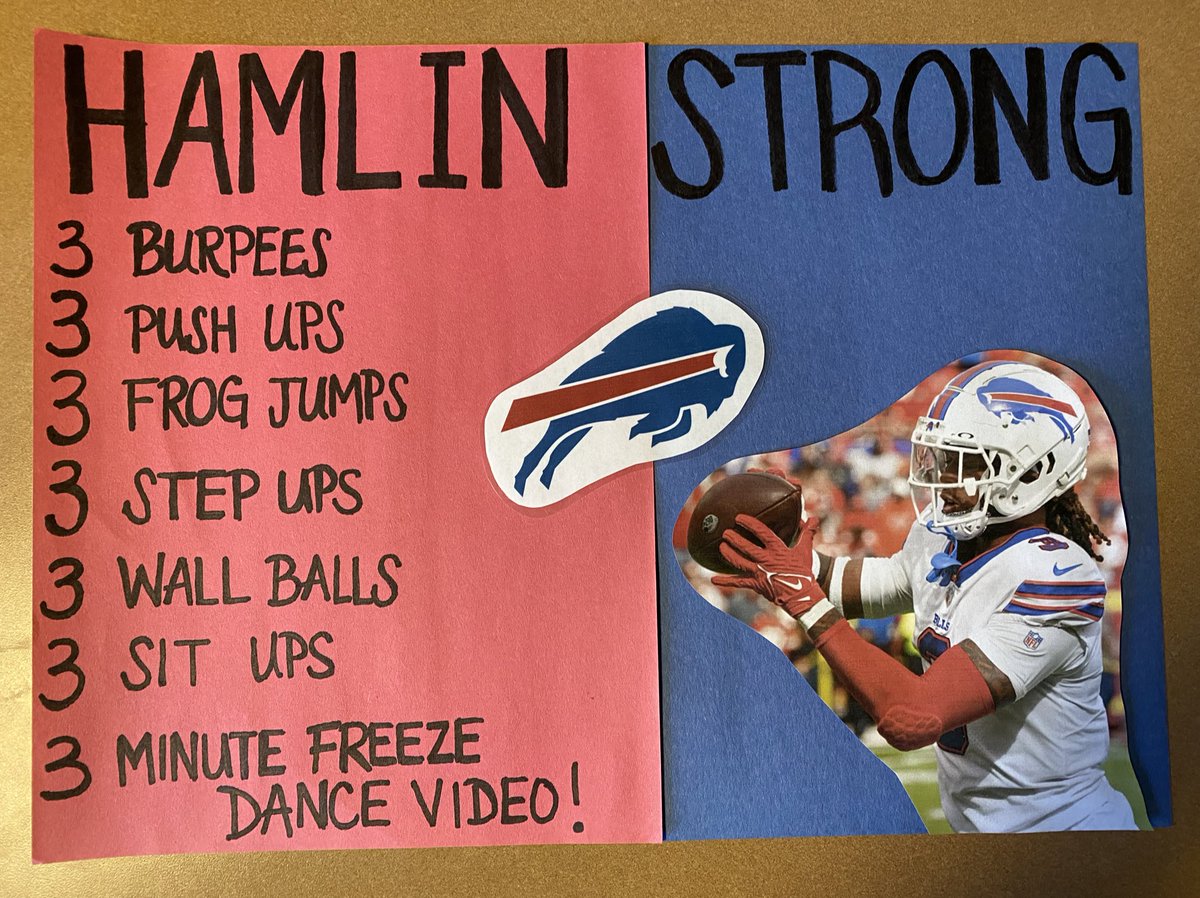 HAMLIN STRONG
3 BURPEES
3 PUSH UPS
3 FROG JUMPS
3 STEP UPS
3 WALL BALLS
3 SIT UPS
3 MINUTE FREEZE
DANCE VIDEO!
BILLS
NFL